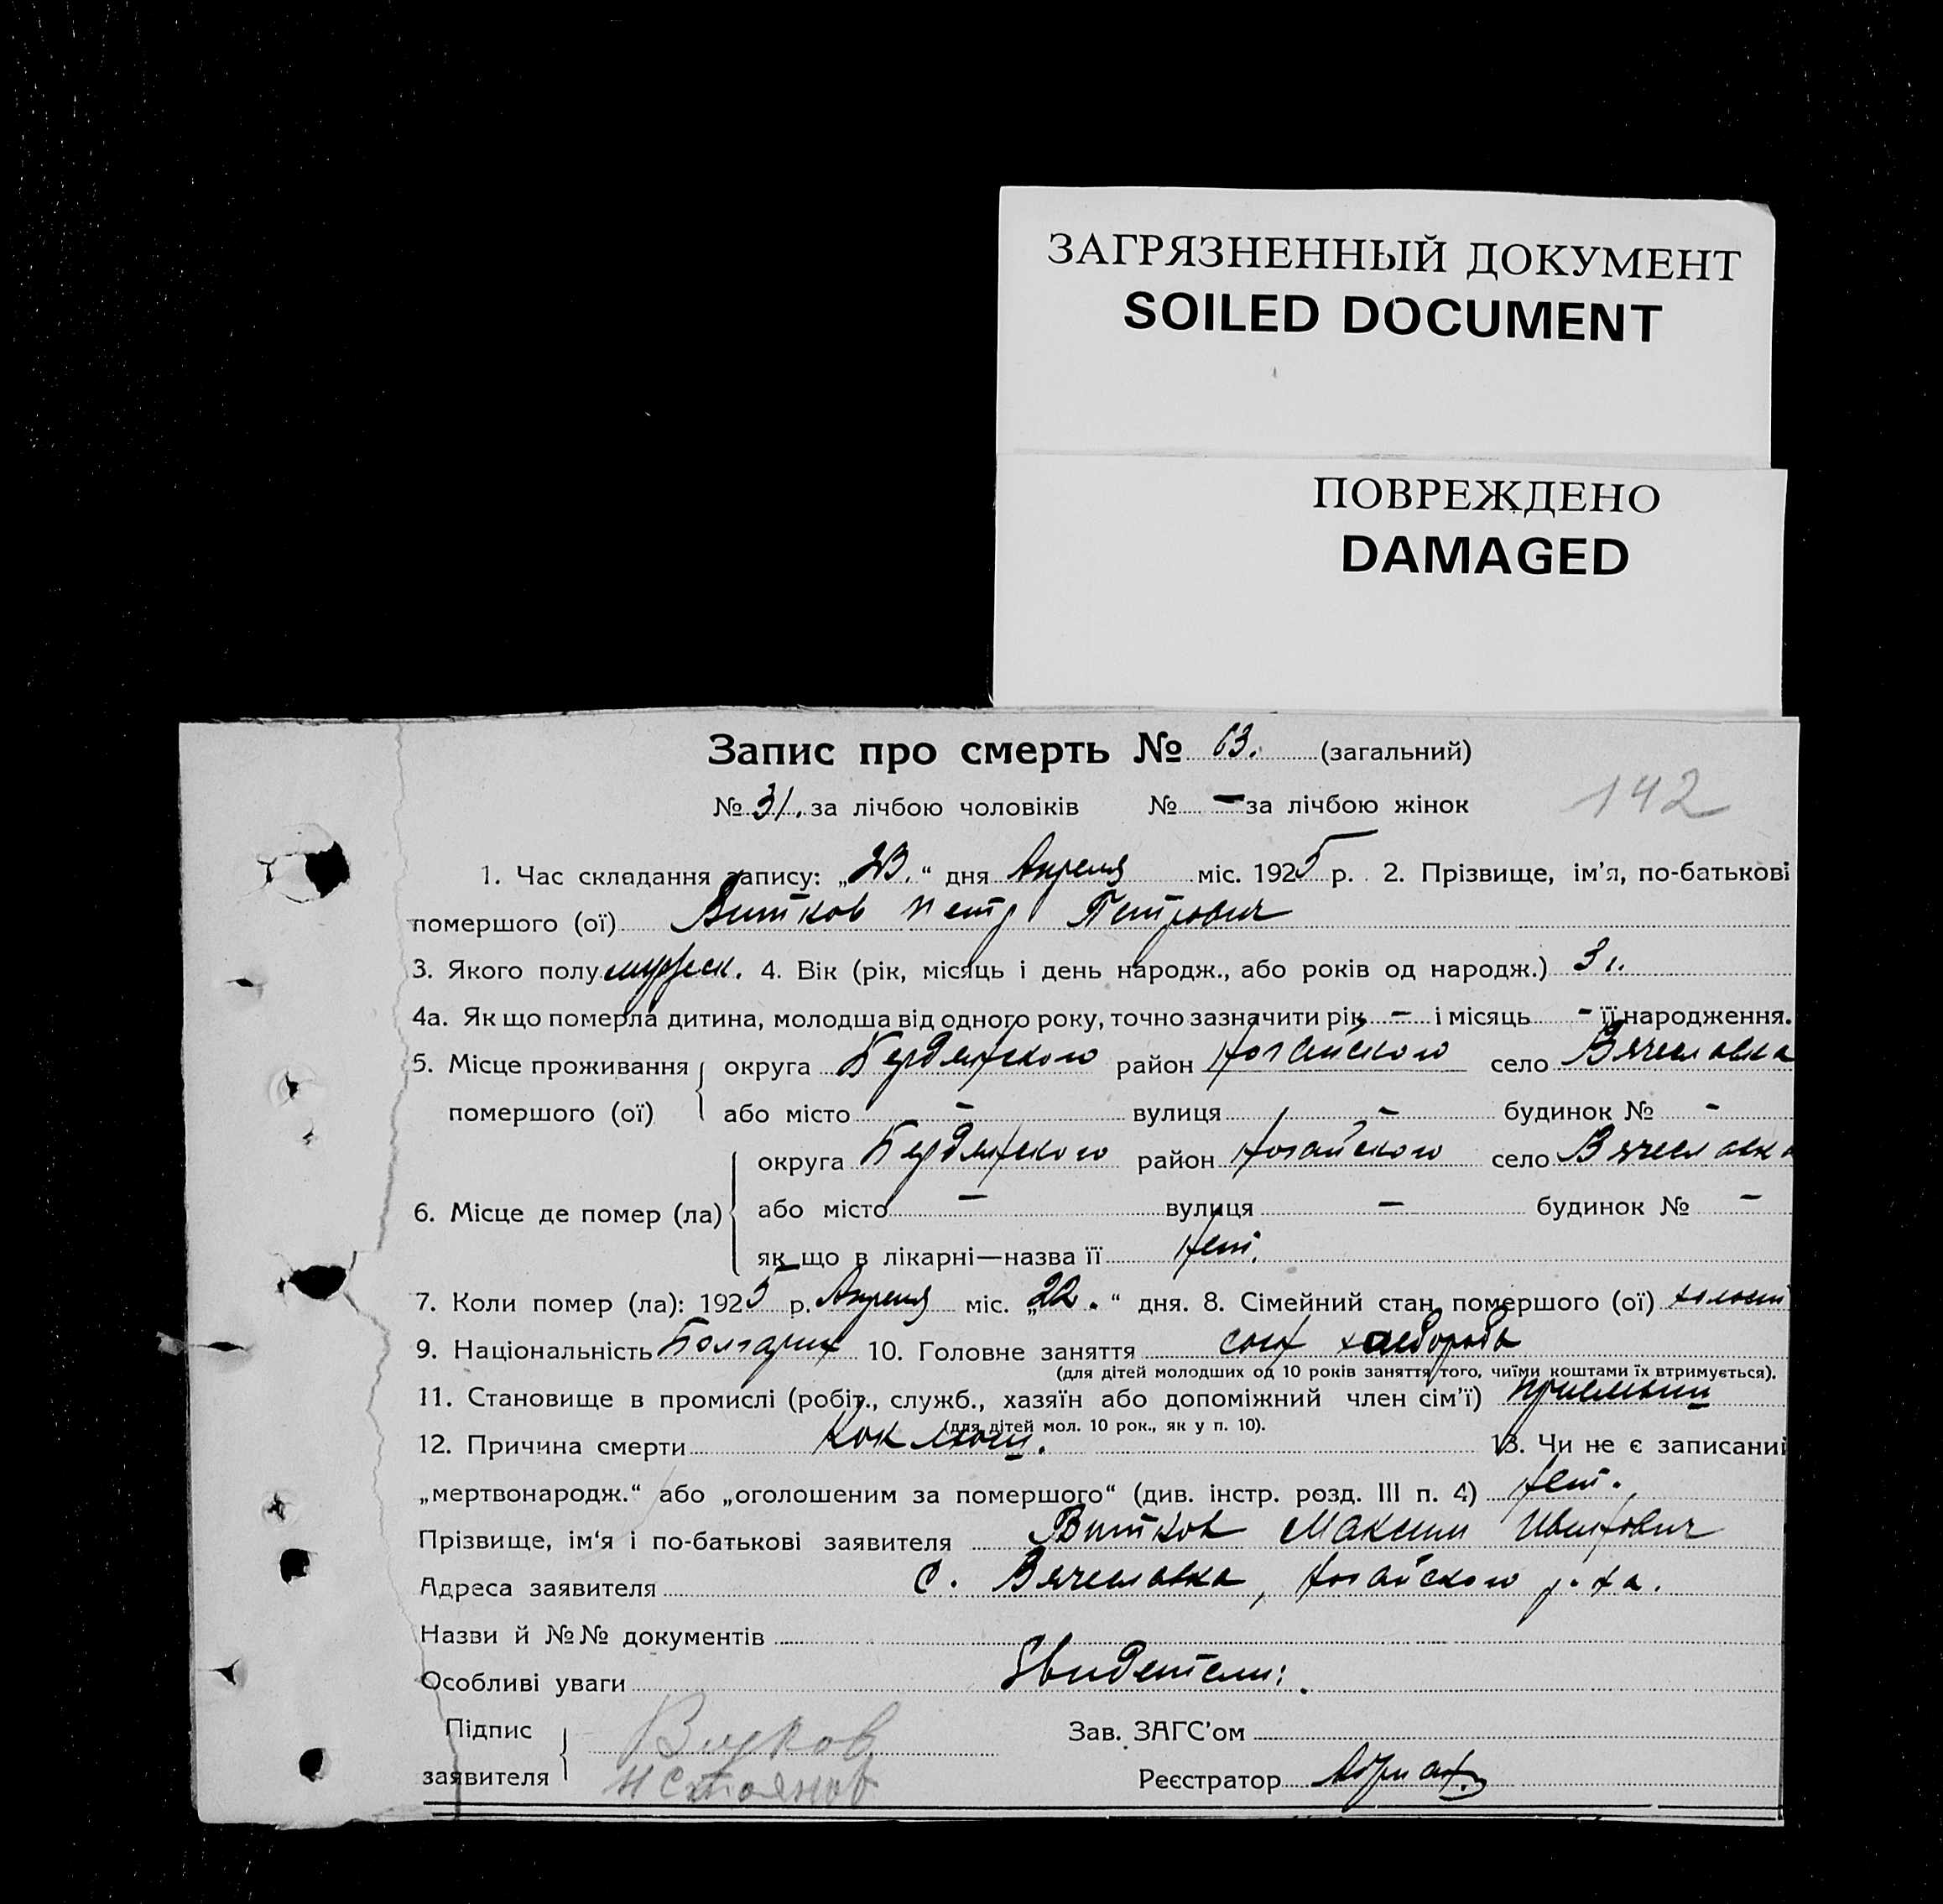 ЗАГРЯЗНЕННЫЙ ДОКУМЕНТ
SOILED DOCUMENT
ПОВРЕЖДЕНО
DAMAGED
Запис про смерть № 63. (загальний)
№ 31. за лічбою чоловіків № - за лічбою жінок 142
1. Час складання запису: „23.“ дня Апреля міс. 1925 р. 2. Прізвище, ім’я, по-батькові
помершого (ої) Витков Петр Петрович
3. Якого полу мужеск. 4. Вік (рік, місяць і день народж., або років од народж.) 3 г.
4а. Як що померла дитина, молодша від одного року, точно зазначити рік - і місяць - її народження.
5. Місце проживання округа Бердянского район Ногайского село Вячеславка
помершого (ої) або місто - вулиця - будинок № -
округа Бердянского район Ногайского село Вячеславка
6. Місце де помер (ла) або місто - вулиця - будинок № -
як що в лікарні—назва її Нет.
7. Коли помер (ла): 1925 р. Апреля міс. „22.“ дня. 8. Сімейний стан помершого (ої) холост
9. Національність Болгарин 10. Головне заняття сын хлебороба
(для дітей молодших од 10 років заняття того, чиїми коштами їх втримується).
11. Становище в промислі (робіт., служб., хазяїн або допоміжний член сім’ї)
(для дітей мол. 10 рок., як у п. 10).
12. Причина смерти Коклюш. 13. Чи не є записаний
„мертвонародж.“ або „оголошеним за помершого“ (див. інстр. розд. III п. 4) Нет.
Прізвище, ім‘я і по-батькові заявителя Витков Максим Иванович
Адреса заявителя С. Вячеславка, Ногайского р-на.
Назви й №№ документів
Особливі уваги Свидетели:
Підпис Витков Зав. ЗАГС’ом
заявителя Н Стоянов Реєстратор